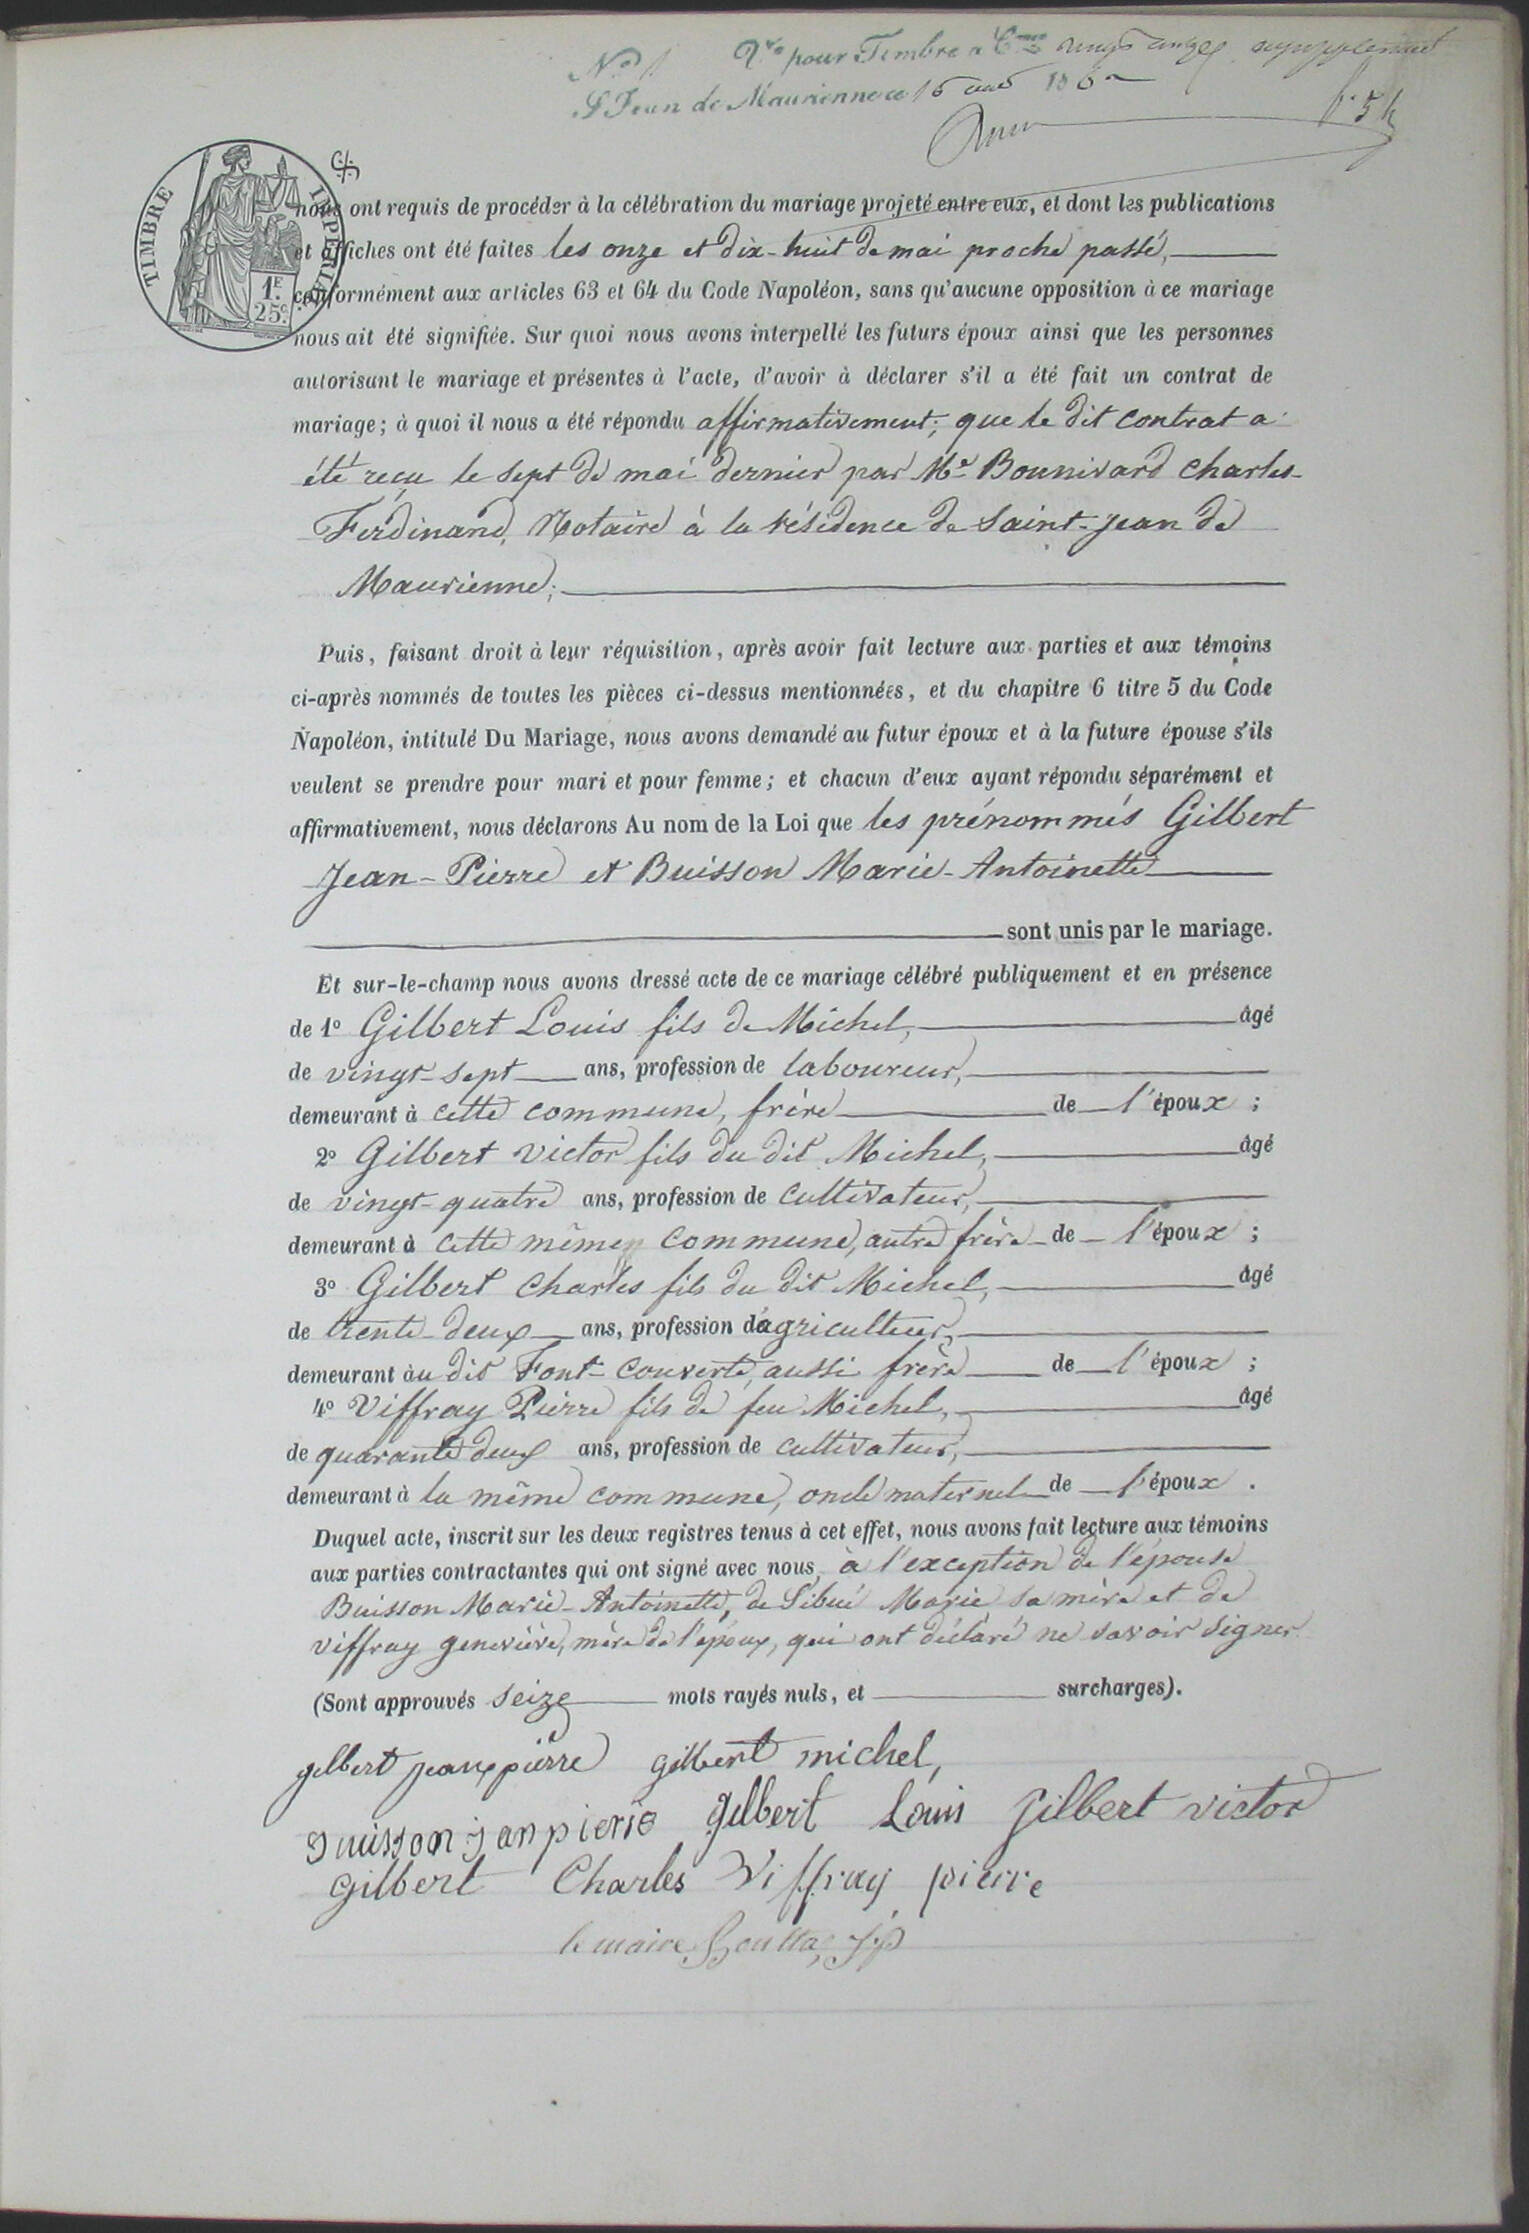 N° 1 Vu pour Timbre à
St Jean de Maurienne ce 16
TIMBRE IMPERIAL
1F.
25c.
nous ont requis de procéder à la célébration du mariage projeté entre eux, et dont les publications
et affiches ont été faites les onze et dix-huit de mai proche passé,
conformément aux articles 63 et 64 du Code Napoléon, sans qu'aucune opposition à ce mariage
nous ait été signifiée. Sur quoi nous avons interpellé les futurs époux ainsi que les personnes
autorisant le mariage et présentes à l'acte, d'avoir à déclarer s'il a été fait un contrat de
mariage; à quoi il nous a été répondu affirmativement; que le dit contrat a
été reçu le sept de mai dernier par Me Bounivard Charles-
Ferdinand, Notaire à la résidence de Saint-Jean de
Maurienne;
Puis, faisant droit à leur réquisition, après avoir fait lecture aux parties et aux témoins
ci-après nommés de toutes les pièces ci-dessus mentionnées, et du chapitre 6 titre 5 du Code
Napoléon, intitulé Du Mariage, nous avons demandé au futur époux et à la future épouse s'ils
veulent se prendre pour mari et pour femme; et chacun d'eux ayant répondu séparément et
affirmativement, nous déclarons Au nom de la Loi que les prénommés Gilbert
Jean-Pierre et Buisson Marie-Antoinette
sont unis par le mariage.
Et sur-le-champ nous avons dressé acte de ce mariage célébré publiquement et en présence
de 1° Gilbert Louis fils de Michel, âgé
de vingt-sept ans, profession de laboureur,
demeurant à cette commune, frère de l'époux ;
2° Gilbert victor fils du dit Michel, âgé
de vingt-quatre ans, profession de cultivateur,
demeurant à cette même commune, autre frère de l'époux ;
3° Gilbert Charles fils du dit Michel, âgé
de trente-deux ans, profession d'agriculteur,
demeurant àu dit Font-couverte, aussi frère de l'époux ;
4° Viffray Pierre fils de feu Michel, âgé
de quarante deux ans, profession de cultivateur,
demeurant à la même commune, oncle maternel de l'époux .
Duquel acte, inscrit sur les deux registres tenus à cet effet, nous avons fait lecture aux témoins
aux parties contractantes qui ont signé avec nous, à l'exception de l'épouse
Buisson Marie-Antoinette, de Sibué Marie sa mère et de
viffray geneviève, mère de l'époux, qui ont déclaré ne savoir signer.
(Sont approuvés seize mots rayés nuls, et surcharges).
gilbert jeanpierre gilbert michel,
buisson janpiere gilbert Louis gilbert victor
gilbert Charles Viffray pierre
le maire